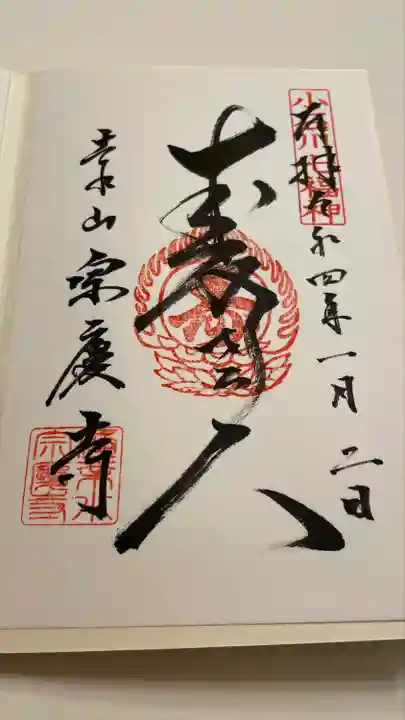 小石川七福神
奉拝 令和四年一月二日
寿老人
吉水山 宗慶寺
宗慶寺